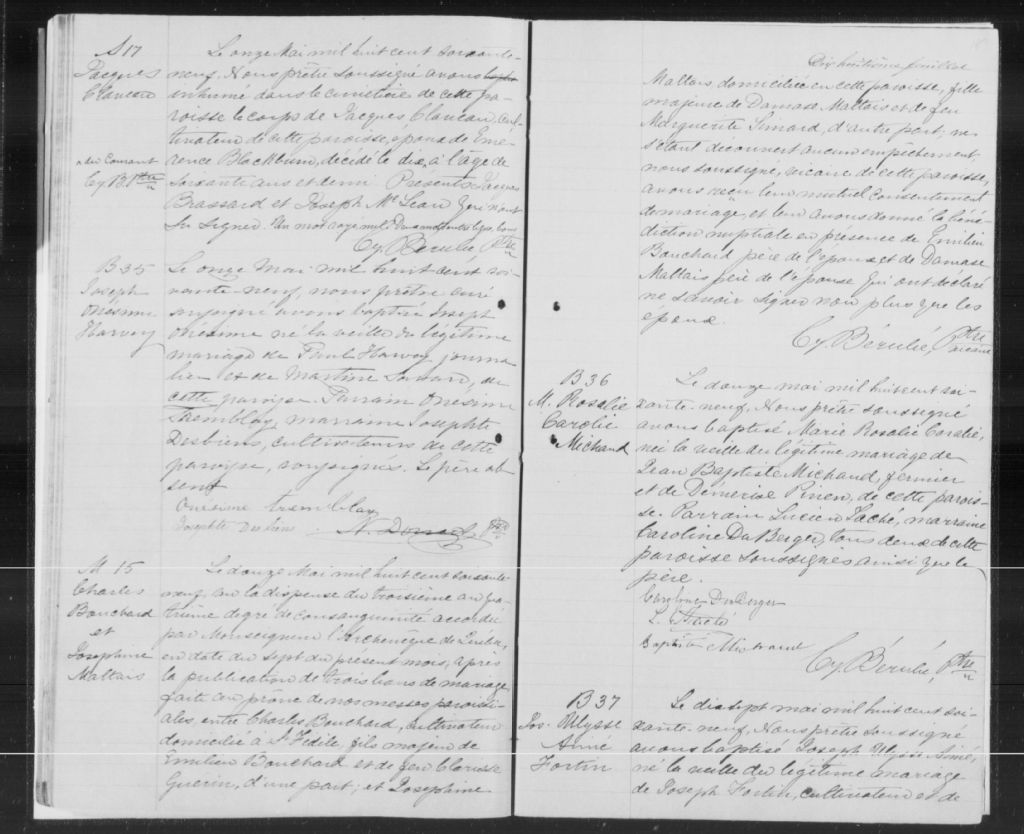 S 17
Jacques
Claveau
" du Courant
Cy B. Ptre
Le onze Mai mil huit cent soixante-
neuf. Nous prêtre soussigné avons
inhumé dans le cimetière de cette pa-
roisse le corps de Jacques Claveau, cul-
tivateur de cette paroisse, époux de Eme-
rence Blackburn, décédé le dix, à l'âge de
soixante ans et demi. Présents Jacques
Brassard et Joseph McLean qui n'ont
su signer. Un mot rayé nul.
Cy Bérubé Ptre
B 35
Joseph
Onésime
Harvey
Le onze Mai mil huit cent soi-
xante-neuf, nous prêtre curé
soussigné avons baptisé Joseph
Onésime né la veille du légitime
mariage de Paul Harvey journa-
lier et de Martine Savard, de
cette paroisse. Parrain Onésime
Tremblay, marraine Josephte
Desbiens, cultivateurs de cette
paroisse, soussignés. Le père ab-
sent
Onesime tremblay
Josephte Desbiens N. Doucet Ptre
M 15
Charles
Bouchard
et
Joséphine
Maltais
Le douze Mai mil huit cent soixante-
neuf, vu la dispense du troisième au qua-
trième degré de consanguinité accordée
par Monseigneur l'Archevêque de Québec,
en date du sept du présent mois, après
la publication de trois bans de mariage
faite au prône de nos messes paroissi-
ales, entre Charles Bouchard, cultivateur
domicilié à St Fidèle, fils majeur de
Emilien Bouchard et de feu Clarisse
Guérin, d'une part; et Joséphine
Dix huitième feuillet
Maltais domiciliée en cette paroisse, fille
majeure de Damase Maltais et de feu
Marguerite Simard, d'autre part; ne
s'étant découvert aucun empêchement
nous soussigné, vicaire de cette paroisse,
avons reçu leur mutuel consentement
de mariage, et leur avons donné la béné-
diction nuptiale en présence de Emilien
Bouchard père de l'époux et de Damase
Maltais père de l'épouse qui ont déclaré
ne savoir signer non plus que les
époux.
Cy Bérubé, Ptre
vicaire
B 36
M. Rosalie
Coralie
Michaud
Le douze mai mil huit cent soi-
xante-neuf. Nous prêtre soussigné
avons baptisé Marie Rosalie Coralie,
née la veille du légitime mariage de
Jean Baptiste Michaud, fermier
et de Démerise Pinen, de cette parois-
se. Parrain Lucien Taché, marraine
Caroline DuBerger, tous deux de cette
paroisse soussignés ainsi que le
père.
Caroline DuBerger
L. Taché
Baptiste Michaud
Cy Bérubé, Ptre
B 37
Jos. Ulysse
Aimé
Fortin
Le dix sept mai mil huit cent soi-
xante-neuf. Nous prêtre soussigné
avons baptisé Joseph Ulysse Aimé,
né la veille du légitime mariage
de Joseph Fortin, cultivateur et de